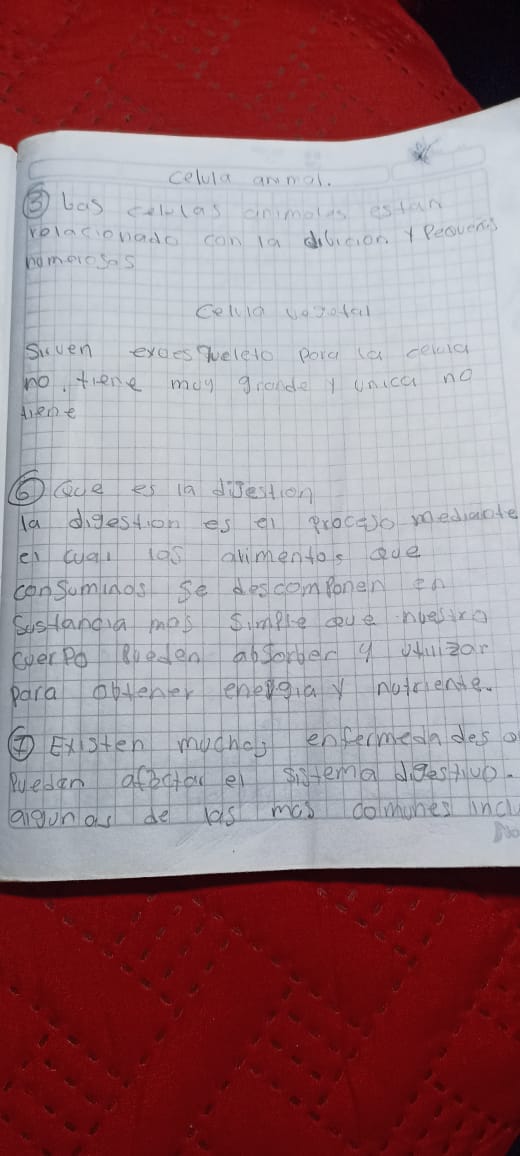 celula animal.
③ Las celulas animales estan
relacionado con la dibicion y Pequeñas
numerosas
Celula vegetal
Sirven exoesqueleto para la celula
no, tiene muy grande y unica no
tiene
⑥ Que es la digestion
la digestion es el proceso mediante
el cual los alimentos que
consumimos se descomponen en
Sustancia mas simple que nuestro
cuerpo Pueden absorber y utilizar
para obtener energia y nutriente.
⑦ Existen muchas enfermedades
Puedan afectar el sistema digestivo.
algunas de las mas comunes inclu
No